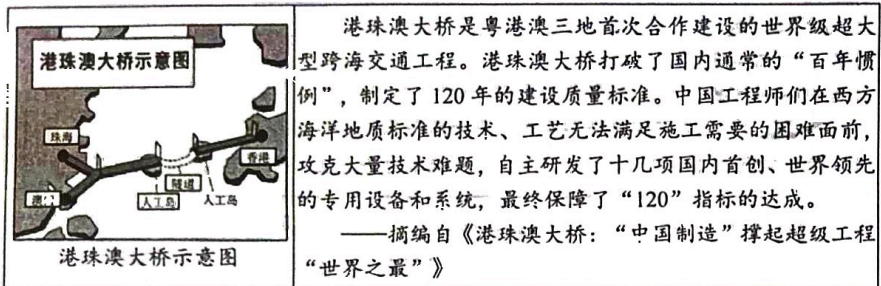 港珠澳大桥示意图
珠海
澳门
人工岛
隧道
人工岛
香港
港珠澳大桥示意图
港珠澳大桥是粤港澳三地首次合作建设的世界级超大
型跨海交通工程。港珠澳大桥打破了国内通常的“百年惯
例”，制定了 120 年的建设质量标准。中国工程师们在西方
海洋地质标准的技术、工艺无法满足施工需要的困难面前，
攻克大量技术难题，自主研发了十几项国内首创、世界领先
的专用设备和系统，最终保障了“120”指标的达成。
——摘编自《港珠澳大桥：“中国制造”撑起超级工程
“世界之最”》